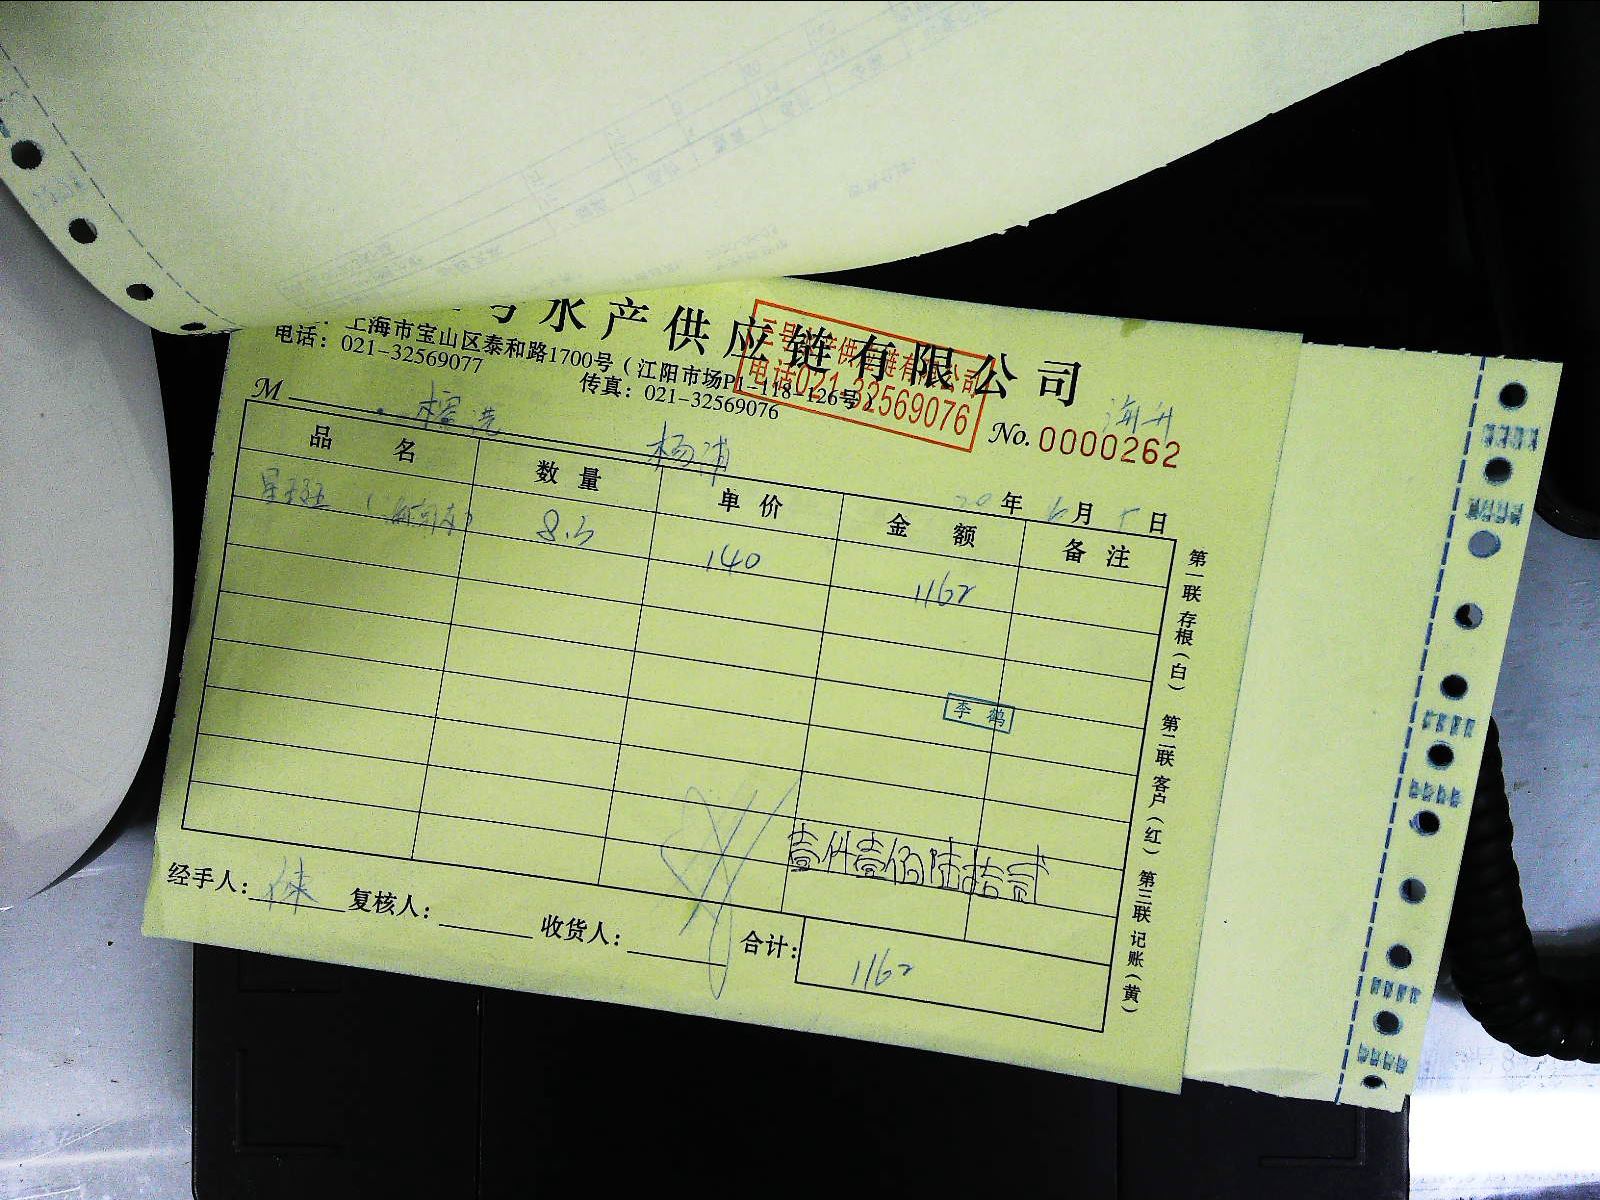 水产供应链有限公司
上海市宝山区泰和路1700号（江阳市场P1-118-126号）
电话：021-32569077 传真：021-32569076
三号水产供应链有限公司
电话021-32569076
M 杨浦
No. 0000262
20年6月 日
品名 数量 单价 金额 备注
星王斑 8.3 140 1162
李鹤
壹仟壹佰陆拾贰
经手人： 复核人： 收货人： 合计：1162
第一联 存根（白） 第二联 客户（红） 第三联 记账（黄）